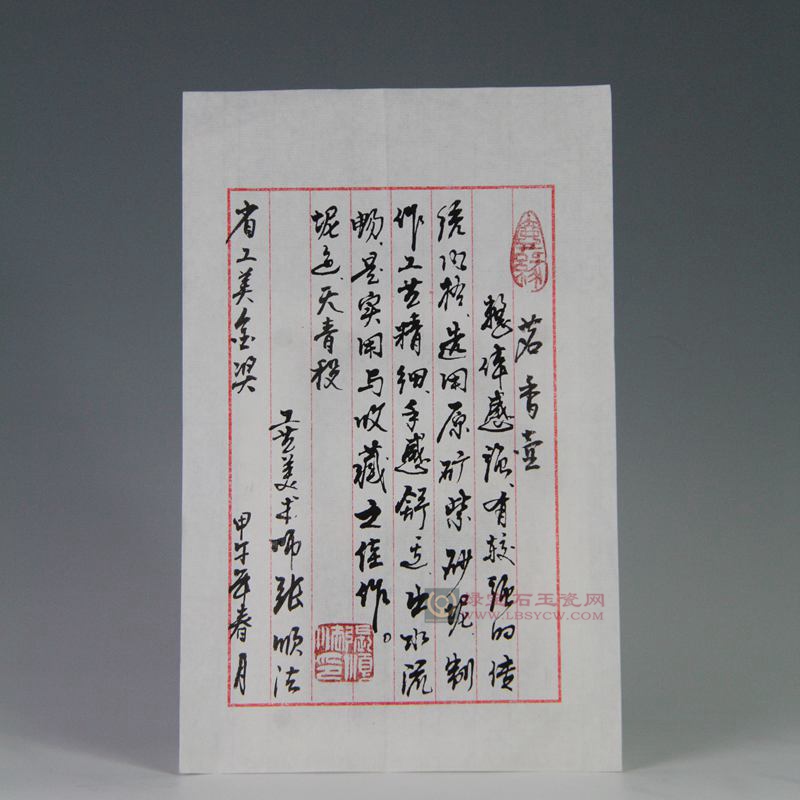 茗香壶
整体感强、有较强的传
统风格、选用原矿紫砂泥、制
作工艺精细、手感舒适、出水流
畅、是实用与收藏之佳作。
泥色、天青段
工艺美术师张顺法
省工美金奖 甲午年春月
绿宝石玉瓷网
WWW.LBSYCW.COM